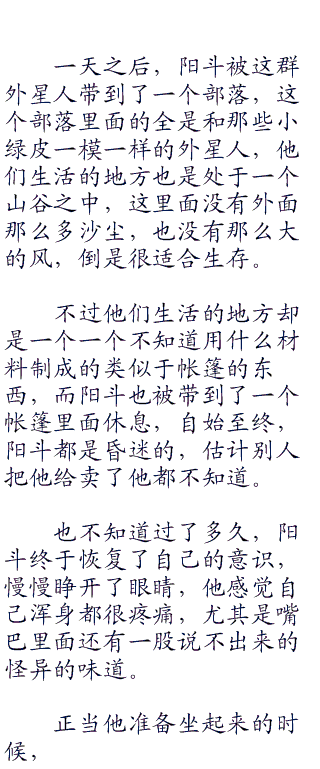 一天之后，阳斗被这群
外星人带到了一个部落，这
个部落里面的全是和那些小
绿皮一模一样的外星人，他
们生活的地方也是处于一个
山谷之中，这里面没有外面
那么多沙尘，也没有那么大
的风，倒是很适合生存。
不过他们生活的地方却
是一个一个不知道用什么材
料制成的类似于帐篷的东
西，而阳斗也被带到了一个
帐篷里面休息，自始至终，
阳斗都是昏迷的，估计别人
把他给卖了他都不知道。
也不知道过了多久，阳
斗终于恢复了自己的意识，
慢慢睁开了眼睛，他感觉自
己浑身都很疼痛，尤其是嘴
巴里面还有一股说不出来的
怪异的味道。
正当他准备坐起来的时
候，